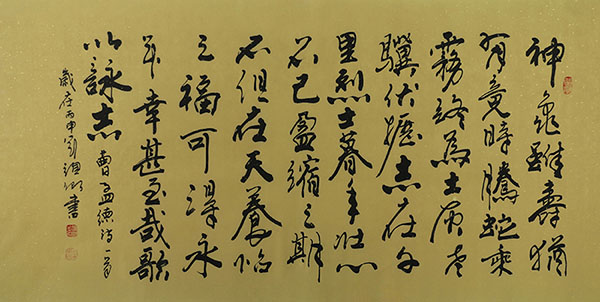 神龜雖壽猶
有竟時騰蛇乘
霧終為土灰老
驥伏櫪志在千
里烈士暮年壯心
不已盈縮之期
不但在天養怡
之福可得永
年幸甚至哉歌
以詠志
曹孟德詩一首
歲在丙申劉書